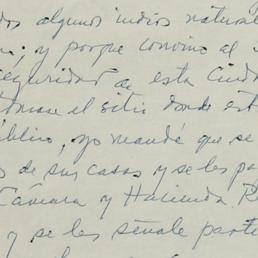 dos algunos indios natural
; y porque convino al
seguridad de esta Ciud
tomase el sitio donde est
blico, yo mandé que se
de sus casas y se les pa
Cámara y Hacienda Re
y se les señale parte